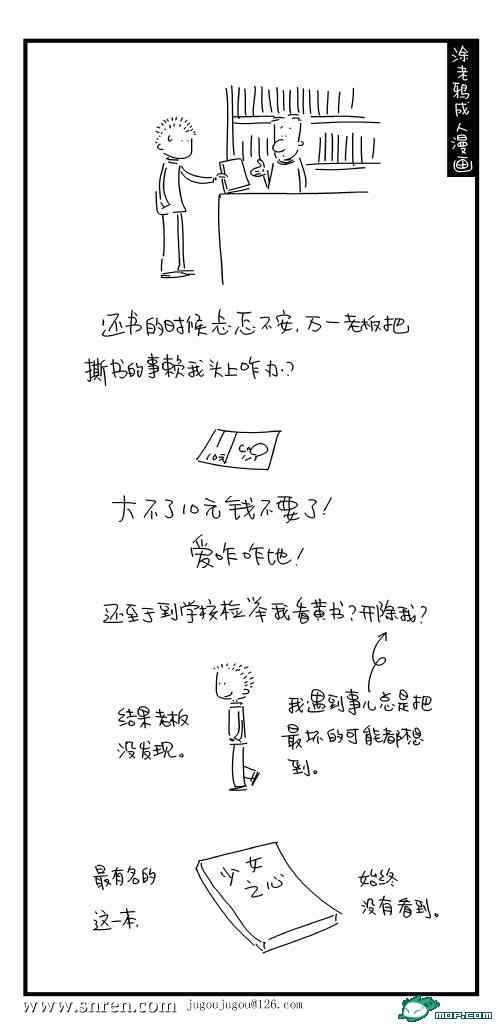 涂老鸦成人漫画
还书的时候忐忑不安，万一老板把
撕书的事赖我头上咋办？
10元
大不了10元钱不要了！
爱咋咋地！
还至于到学校检举我看黄书？开除我？
结果老板
没发现。
我遇到事儿总是把
最坏的可能都想
到。
少女
之心
最有名的
这一本，
始终
没有看到。
www.snren.com jugoujugou@126.com
MOP.COM